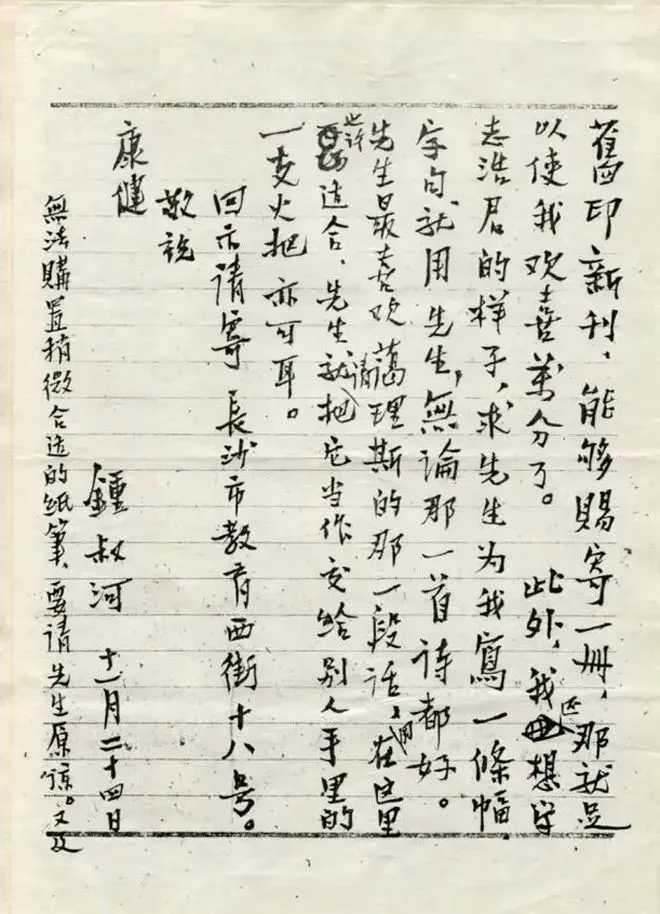 舊印新刊，能够賜寄一册，那就足
以使我欢喜萬分了。此外，我还想学
志浩君的样子，求先生为我寫一條幅，
字句就用先生，無論那一首诗都好。
先生最喜欢藹理斯的那一段话，用在这里
也许适合，先生就请把它当作交给别人手里的
一支火把亦可耳。
回示请寄長沙市教育西街十八号。
敬祝
康健
鍾叔河 十一月二十四日
無法購置稍微合适的纸筆，要请先生原谅。又及